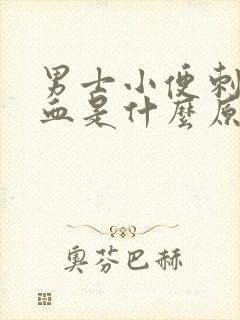 男士小便刺
血是什麼原
奧芬巴赫